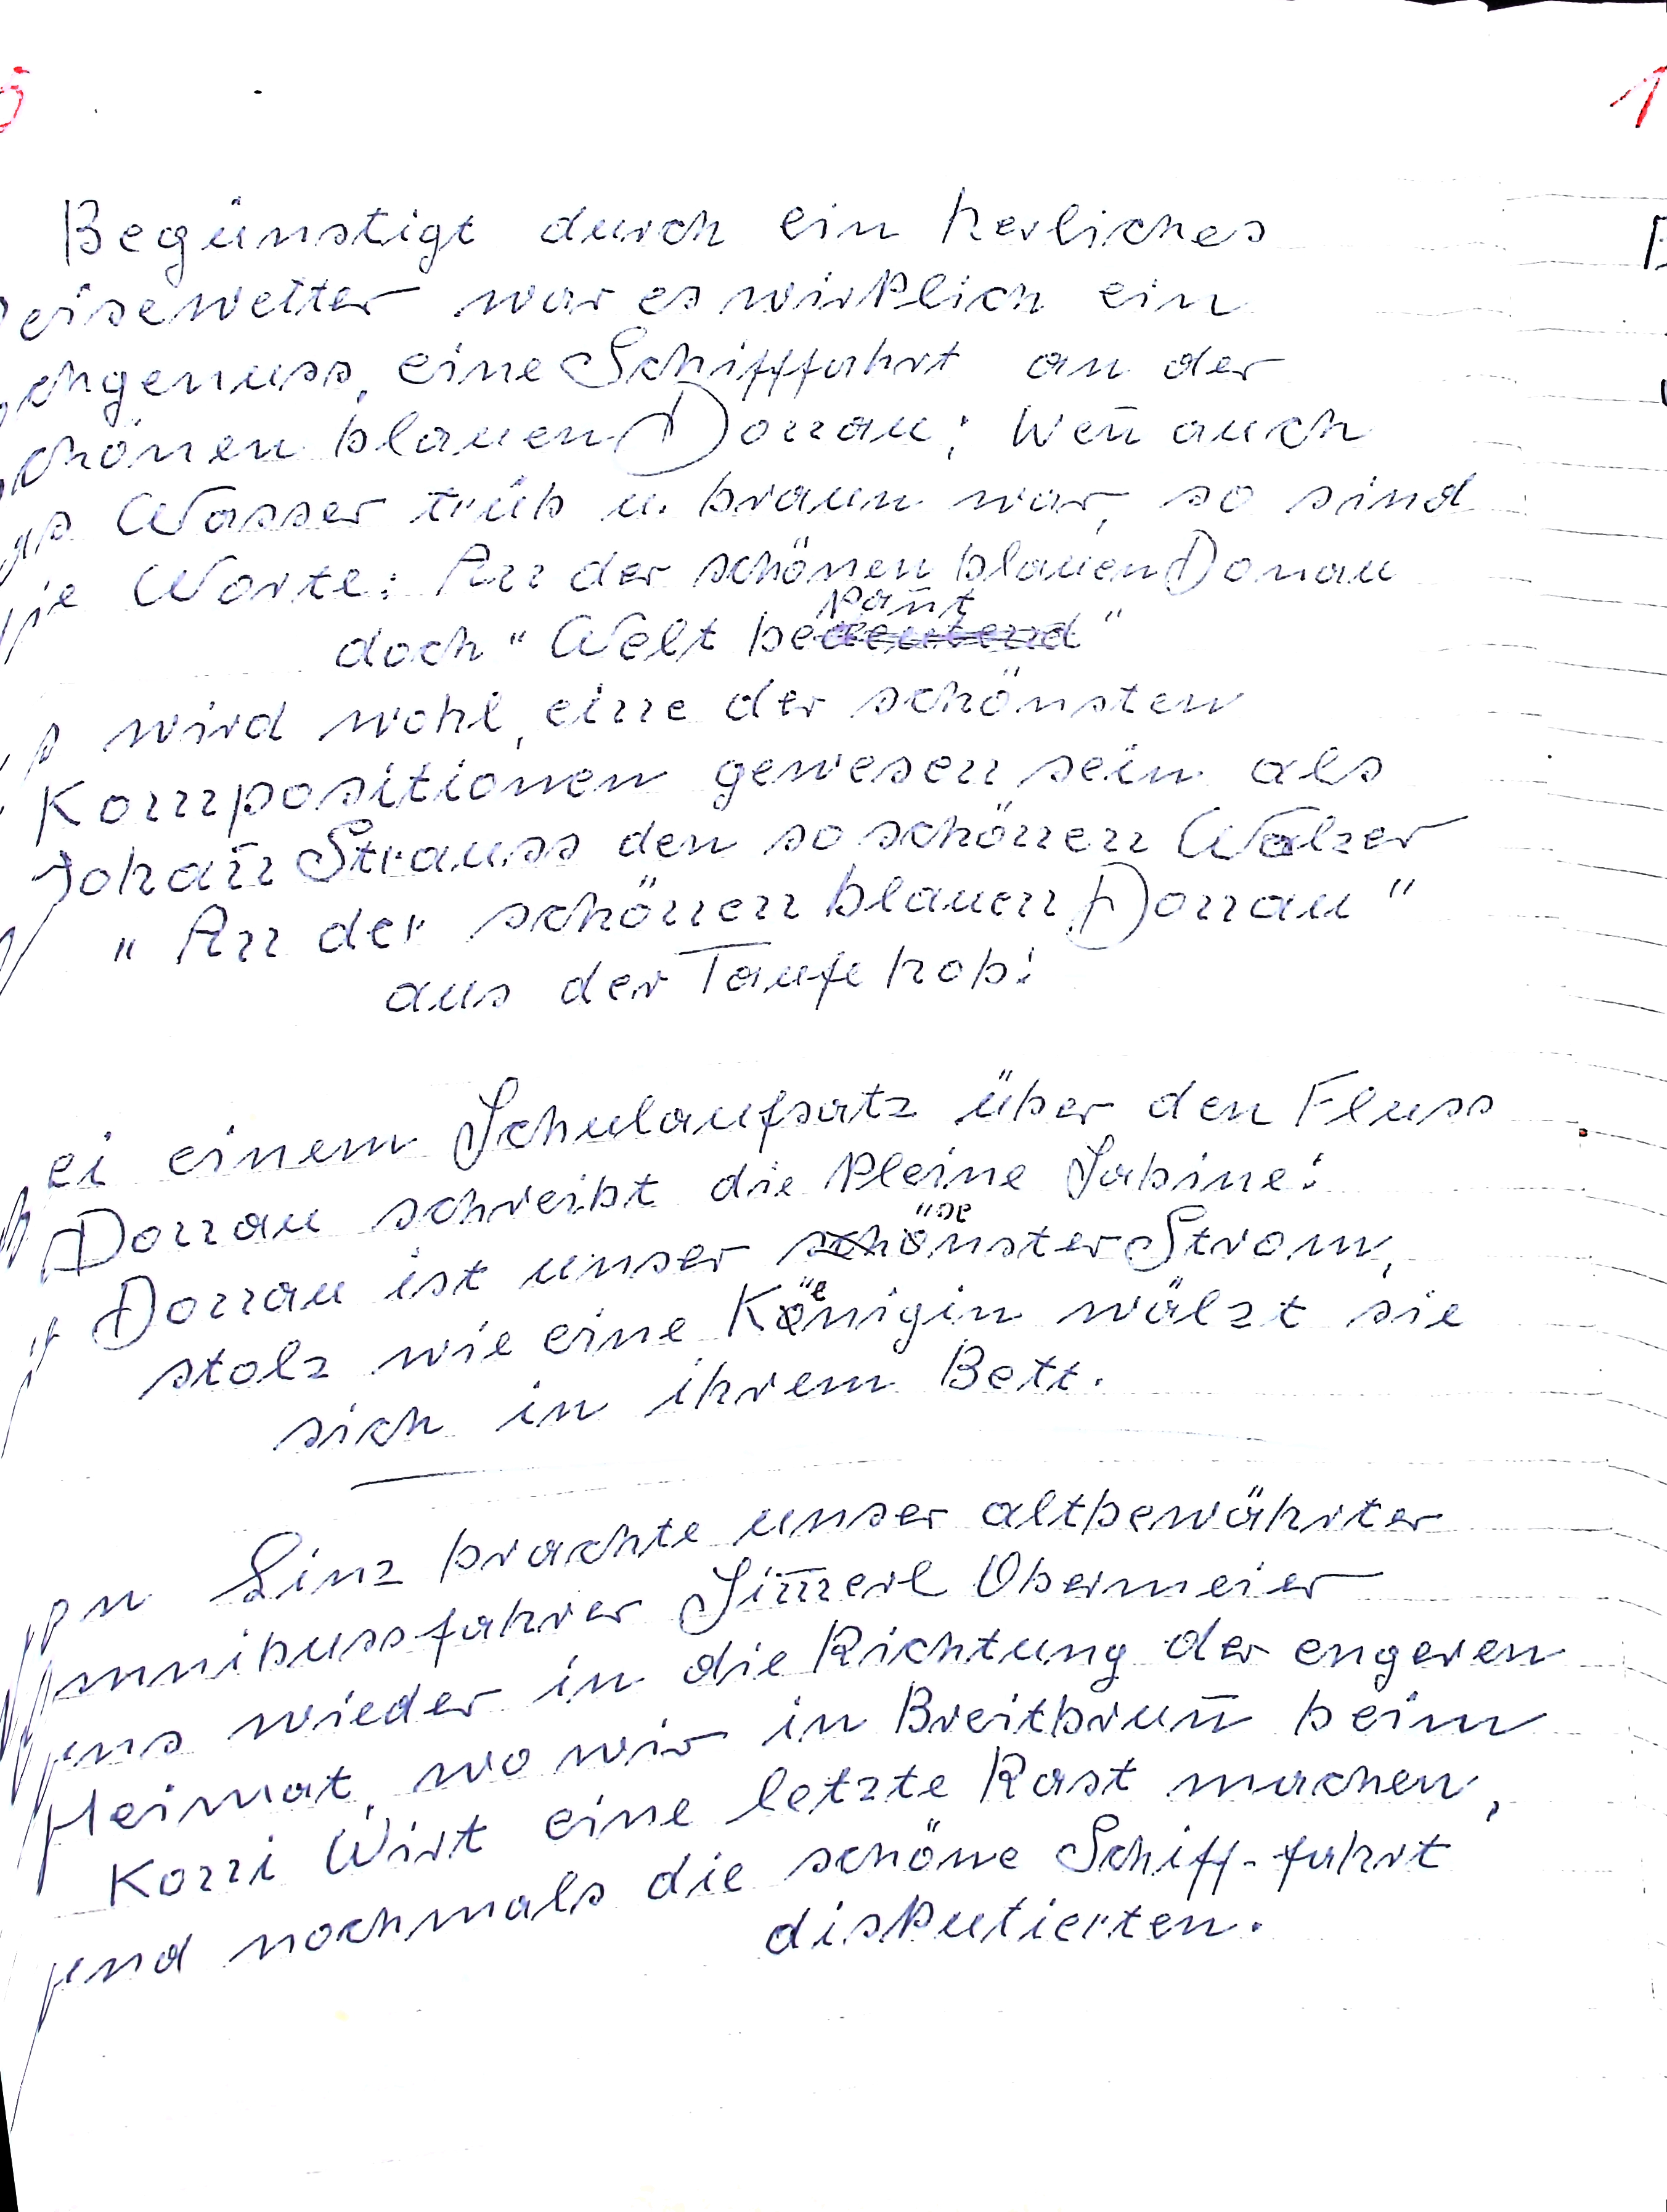 1
Begünstigt durch ein herliches
eisewetter war es wirklich ein
chgenuss, eine Schifffahrt an der
schönen blauen Donau; Weñ auch
as Wasser trüb u. braun war, so sind
ie Worte: An der schönen blauen Donau
kañt
doch "Welt bedeutend"
s wird wohl, eine der schönsten
Kompositionen gewesen sein als
Johañ Strauss den so schönen Walzer
"An der schönen blauen Donau"
aus der Taufe hob!
ei einem Schulaufsatz über den Fluss
Donau schreibt die kleine Sabine:
Donau ist unser schönster Strom,
stolz wie eine Königin wälzt sie
sich in ihrem Bett.
on Linz brachte unser altbewährter
mnibussfahrer Sim̄erl Obermeier
uns wieder in die Richtung der engeren
Heimat, wo wir in Breitbruñ beim
Konni Wirt eine letzte Rast machen,
und nochmals die schöne Schiff-fahrt
disputierten.